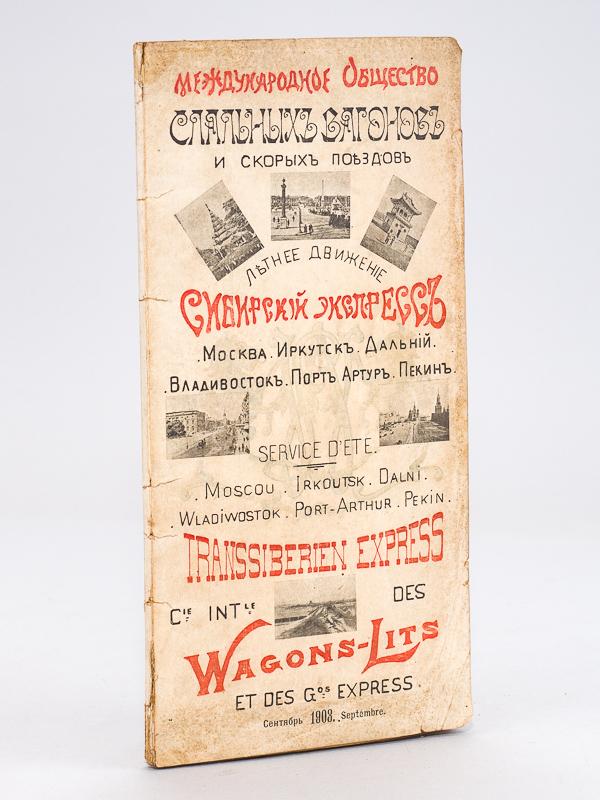 Международное Общество
Спальныхъ Вагоновъ
и скорыхъ поѣздовъ
Лѣтнее движеніе
Сибирскій экспрессъ
.Москва. Иркутскъ. Дальній.
.Владивостокъ. Портъ Артуръ. Пекинъ.
SERVICE D'ETE.
.Moscou. Irkoutsk. Dalni.
.Wladiwostok. Port-Arthur. Pekin.
TRANSSIBERIEN EXPRESS
CIE INTLE DES
WAGONS-LITS
ET DES GOS EXPRESS.
Сентябрь 1903. Septembre.